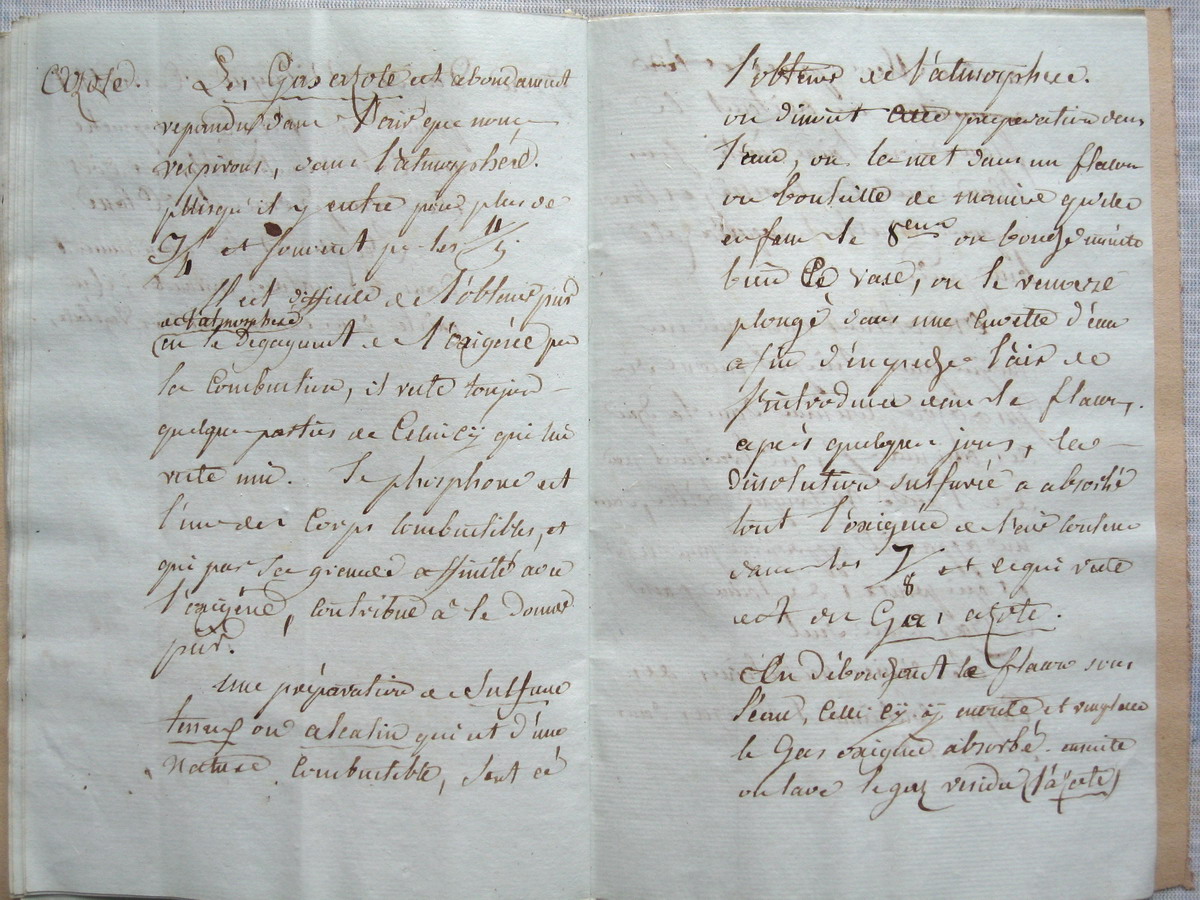 Azote. Le Gas azote est abondamment
repandu dans l'air que nous
respirons, dans l'atmosphére.
puisqu'il y entre pour plus de
3/4 et souvent pr les 4/5.
Il est difficile de l'obtenir pur
de l'atmosphere
en le dégageant de l'oxigéne par
la Combustion, il reste toujours
quelques parties de Celui cy qui lui
reste uni. Le phosphore est
l'un des Corps Combustibles, et
qui par sa grande affinité avec
l'oxigéne, Contribue à le donner
pur.
Une préparation de Sulfure
terreux ou alcalin qui est d'une
Nature Combustible, sert à
l'obtenir de l'atmosphere.
on dissout cette preparation dans
l'eau, on la met dans un flacon
ou bouteille de maniere qu'elle
en fasse le 8eme on bouche ensuite
bien le vase, on le renverse
plongé dans une Cuvette d'eau
afin d'empecher l'air de
s'introduire dans le flacon.
après quelques jours, la
dissolution sulfurée a absorbé
tout l'oxigéne de l'air contenu
dans les 7/8 et ce qui reste
est du Gas azote.
En débouchant le flacon sous
l'eau, Celle cy y monte et remplace
le Gas oxigène absorbé. ensuite
on lave le gaz residu (l'azote)